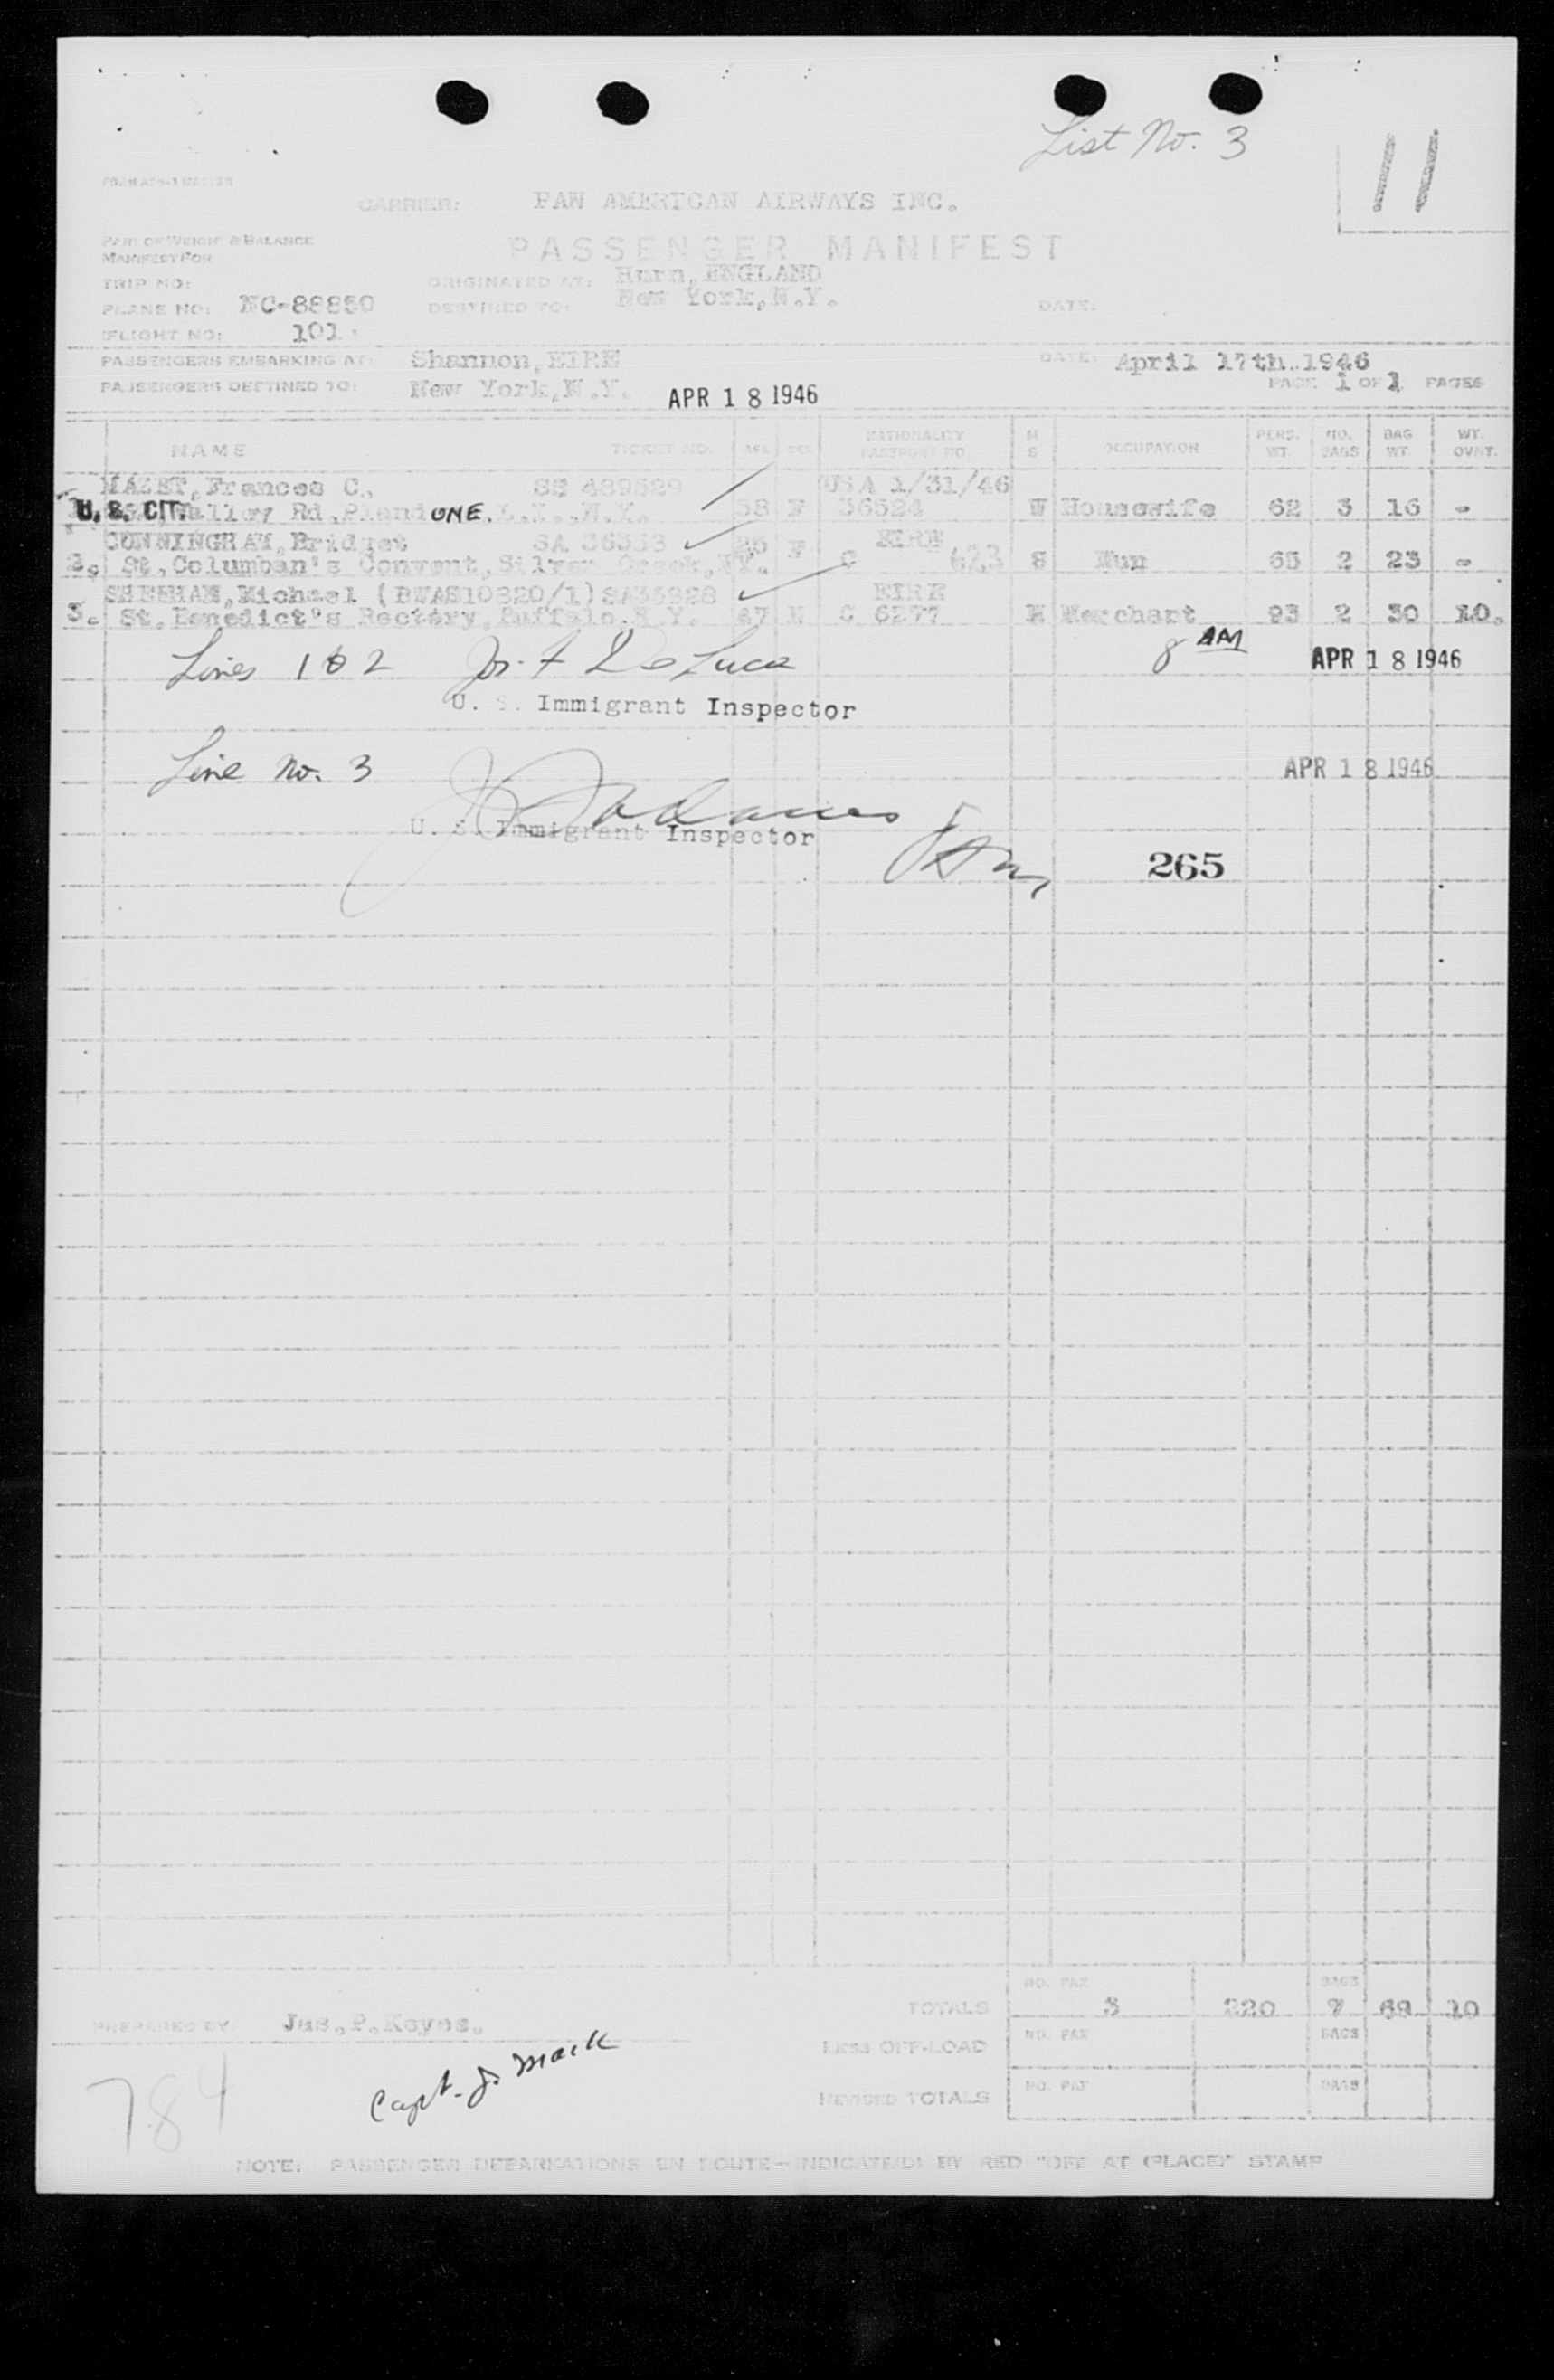 List No. 3
11
CARRIER: PAN AMERICAN AIRWAYS INC.
PART OF WEIGHT & BALANCE
MANIFEST FOR
PASSENGER MANIFEST
TRIP NO: ORIGINATED AT: Hurn, ENGLAND
PLANE NO: NC-88850 DESTINED TO: New York, N.Y. DATE:
FLIGHT NO: 101.
PASSENGERS EMBARKING AT: Shannon, EIRE DATE: April 17th.1946
PASSENGERS DESTINED TO: New York, N.Y. APR 18 1946 PAGE 1 OF 1 PAGES
NAME TICKET NO. AGE SEX NATIONALITY PASSPORT NO. M S OCCUPATION PERS. WT. NO. BAGS BAG WT. WT. OVNT.
Frances C., USA 1/31/46
U.S. CIT. Valley Rd, PlandOME. L.I., N.Y. 58 F 36524 W Housewife 62 3 16 -
CUNNINGHAM, Bridget SA 36353 26 F EIRE
2. St, Columban's Convent, Silver Creek, NY. C 623 S Nun 65 2 23 -
SHEEHAN, Michael (BWAS10820/1) SA35828 EIRE
3. St. Benedict's Rectory, Buffalo, N.Y. 47 M C 6277 M Merchant 93 2 30 10.
Lines 1 & 2 De Luca 8 AM APR 18 1946
U. S. Immigrant Inspector
Line No. 3 APR 18 1946
U. S. Immigrant Inspector
265
NO. PAX BAGS
TOTALS 3 220 7 69 10
PREPARED BY. Jas. P. Keyes.
LESS OFF-LOAD NO. PAX BAGS
Capt. J. Mack
784
REVISED TOTALS NO. PAX BAGS
NOTE: PASSENGER DEBARKATIONS EN ROUTE—INDICATE(D) BY RED "OFF AT (PLACE)" STAMP